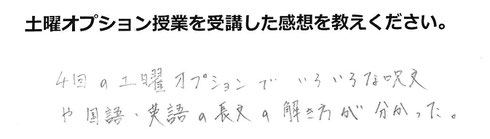 土曜オプション授業を受講した感想を教えください。
4回の土曜オプションでいろいろな呪文
や国語・英語の長文の解き方が分かった。